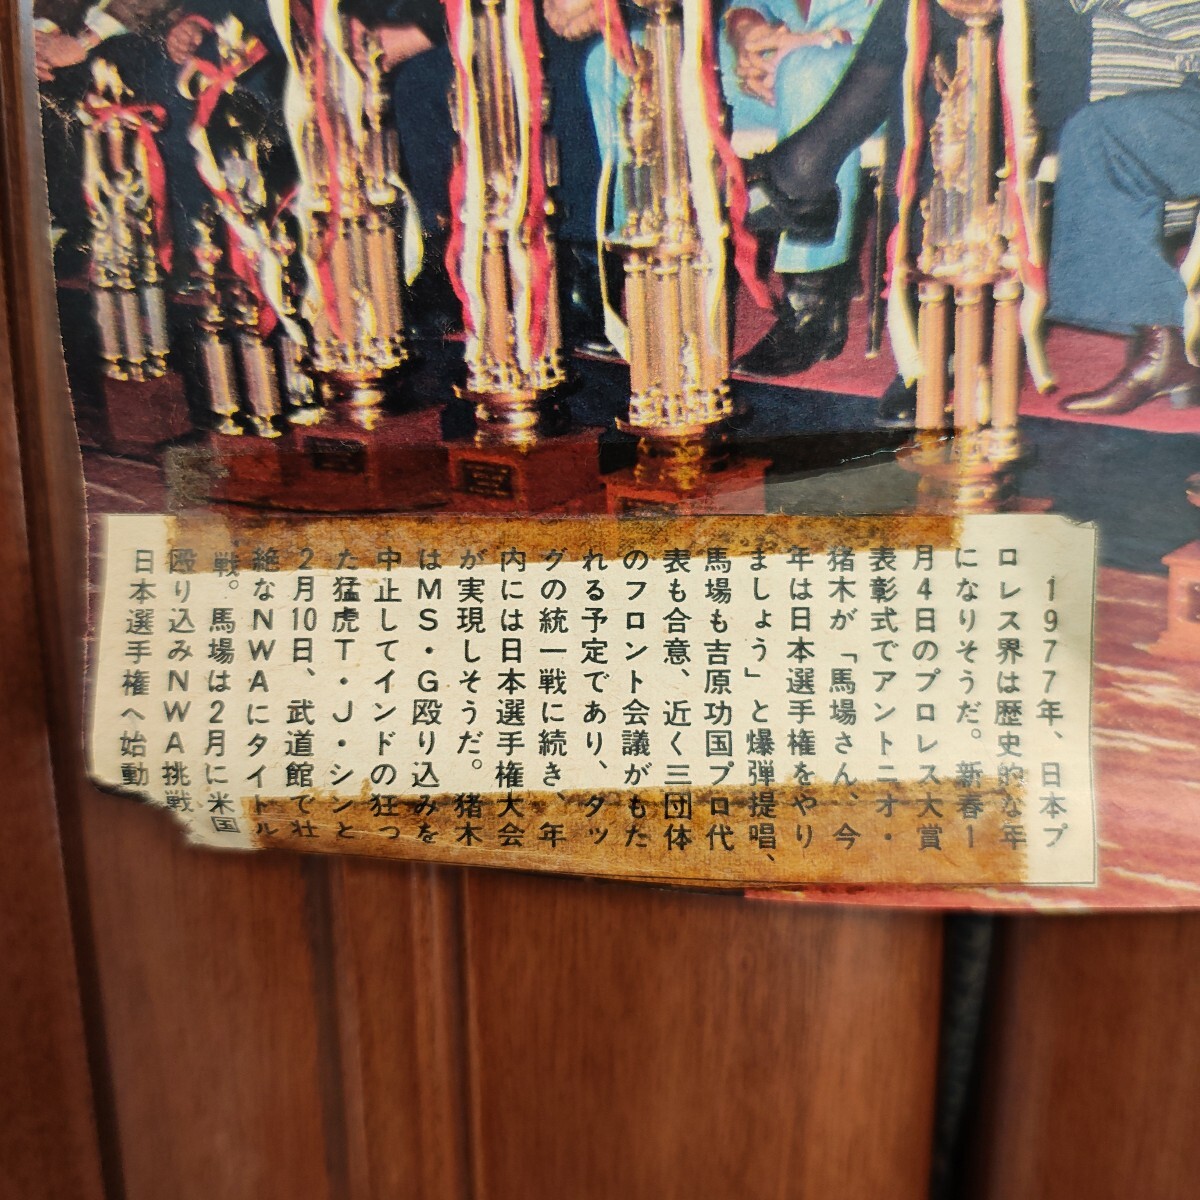 1977年、日本プ
ロレス界は歴史的な年
になりそうだ。新春1
月4日のプロレス大賞
表彰式でアントニオ・
猪木が「馬場さん、今
年は日本選手権をやり
ましょう」と爆弾提唱、
馬場も吉原功国プロ代
表も合意、近く三団体
のフロント会議がもた
れる予定であり、タッ
グの統一戦に続き、年
内には日本選手権大会
が実現しそうだ。猪木
はMS・G殴り込みを
中止してインドの狂っ
た猛虎T・J・シンと
2月10日、武道館で壮
絶なNWAにタイトル
戦。馬場は2月に米国
殴り込みNWA挑戦
日本選手権へ始動